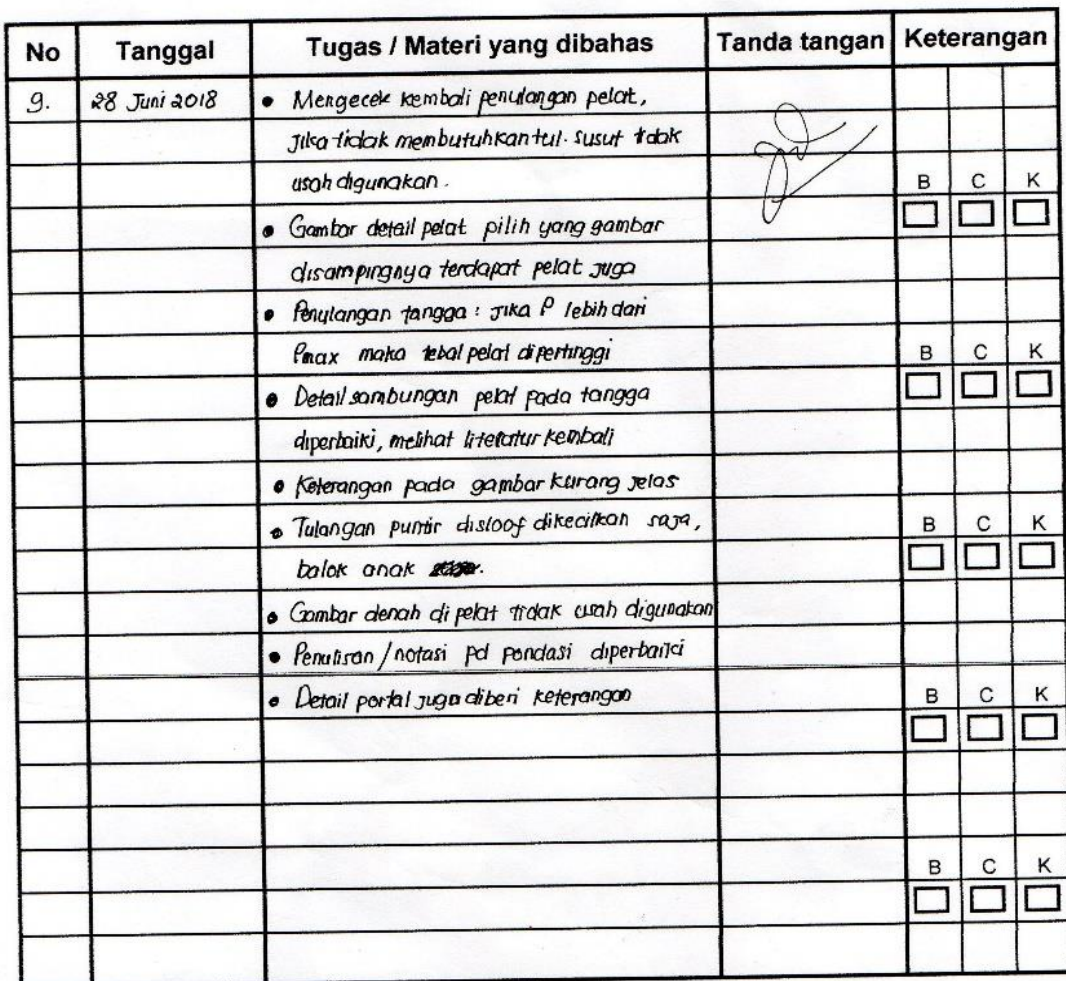 No Tanggal Tugas / Materi yang dibahas Tanda tangan Keterangan
9. 28 Juni 2018 • Mengecek kembali penulangan pelat,
Jika tidak membutuhkan tul. susut tidak
usah digunakan.
B C K
• Gambar detail pelat pilih yang gambar
disampingnya terdapat pelat juga
• Penulangan tangga : Jika ρ lebih dari
ρmax maka tebal pelat dipertinggi
B C K
• Detail sambungan pelat pada tangga
diperbaiki, melihat literatur kembali
• Keterangan pada gambar kurang jelas
• Tulangan puntir disloof dikecilkan saja,
B C K
balok anak
• Gambar denah di pelat tidak usah digunakan
• Penulisan / notasi pd pondasi diperbaiki
• Detail portal juga diberi keterangan
B C K
B C K